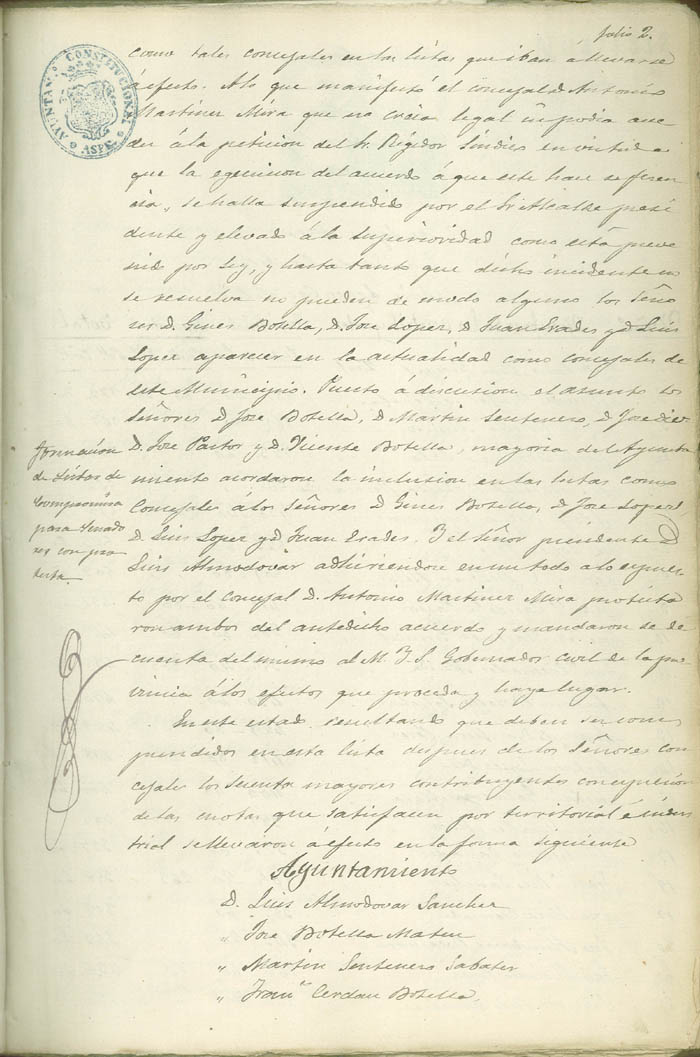 folio 2.
AYUNTAM. CONSTITUCIONAL
ASPE
como tales concejales en las listas que iban a llevarse
á efecto. A lo que manifestó el concejal D. Antonio
Martinez Mira que no creia legal ni podia acce-
der á la peticion del Sr. Regidor Sindico en virtud a
que la egecucion del acuerdo á que este hace referen
cia, se halla suspendido por el Sr Alcalde presi
dente y elevado á la superioridad como está preve
nido por ley, y hasta tanto que dicho incidente no
se resuelva no pueden de modo alguno los Seño
res D. Gines Botella, D. Jose Lopez, D. Juan Erades y D. Luis
Lopez aparecer en la actualidad como concejales de
este Municipio. Puesto á discusion el asunto los
Señores D. Jose Botella, D. Martin Sentenero, D. Jose
D. Jose Pastor y D. Vicente Botella, mayoria del Ayunta
miento acordaron la inclusion en las listas como
Concejales á los Señores D. Gines Botella, D. Jose Lopez
D. Luis Lopez y D. Juan Erades. Y el Señor presidente D.
Luis Almodovar adhiriendose en un todo a lo espues
to por el Concejal D. Antonio Martinez Mira protesta
ron ambos del antedicho acuerdo y mandaron se de
cuenta del mismo al M. Y. S. Gobernador Civil de la pro
vincia á los efectos que proceda y haya lugar.
En este estado resultando que deben ser com
prendidos en esta lista despues de los Señores con
cejales los sesenta mayores contribuyentes con espresion
de las cuotas que satisfacen por territorial é indus
trial se llevaron á efecto en la forma siguiente
Ayuntamiento
D. Luis Almodovar Sanchez
" Jose Botella Mateu
" Martin Sentenero Sabater
" Franco Cerdan Botella.
Formacion
de listas de
Compromisa
para Senado
res con pro
testa.